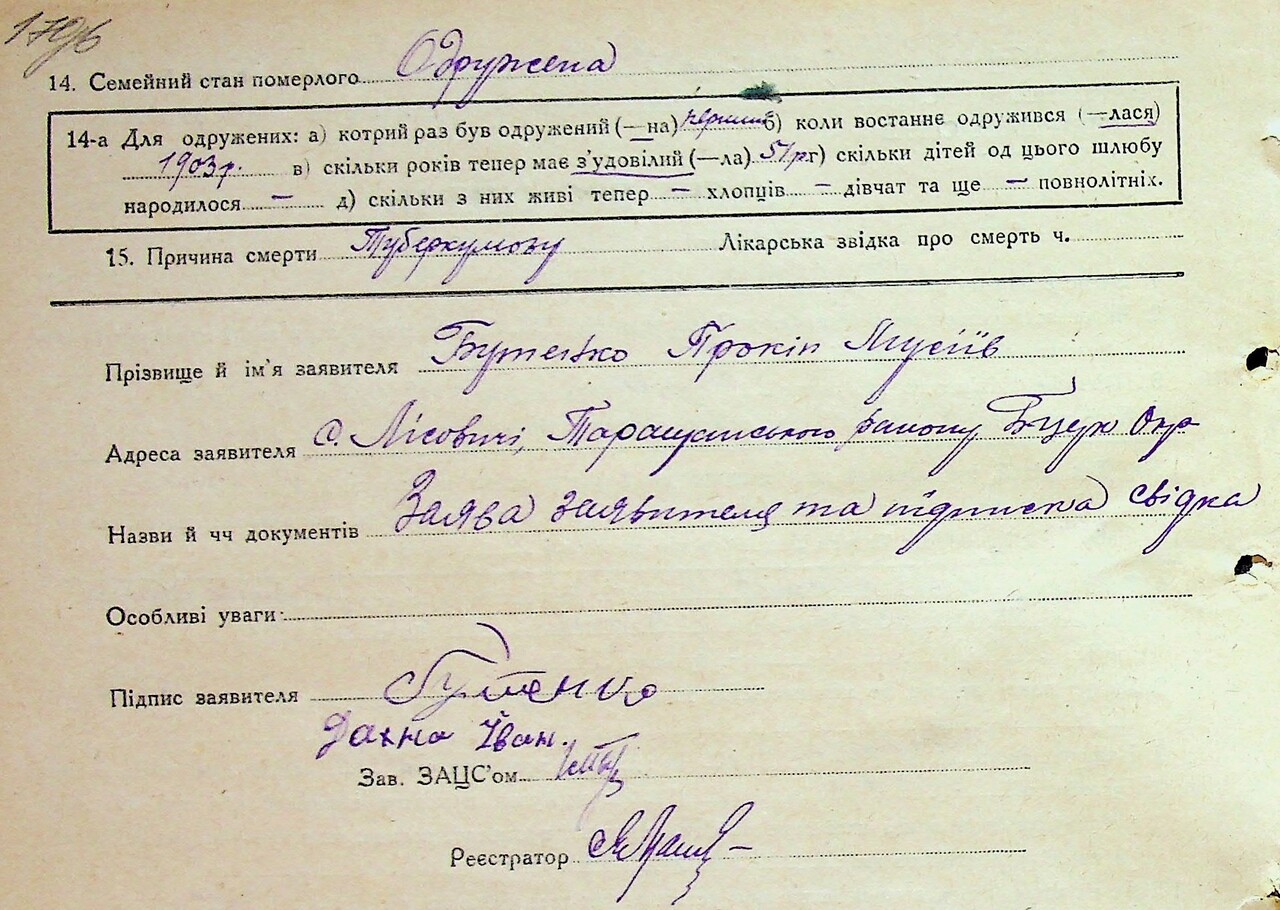 179б
14. Семейний стан померлого Одружена
14-а Для одружених: а) котрий раз був одружений (—на) перший б) коли востанне одружився (—лася)
1903 р. в) скільки років тепер має з'удовілий (—ла) 51 р. г) скільки дітей од цього шлюбу
народилося — д) скільки з них живі тепер — хлопців — дівчат та ще — повнолітніх.
15. Причина смерти Туберкульозу Лікарська звідка про смерть ч.
Прізвище й ім'я заявителя Бутенко Прокіп Мусіїв
Адреса заявителя с. Лісовичі, Таращанського району Бцерк Окр
Назви й чч документів Заява заявителя та підписка свідка
Особливі уваги
Підпис заявителя Бутенко
Дахно Іван.
Зав. ЗАЦС'ом
Реєстратор